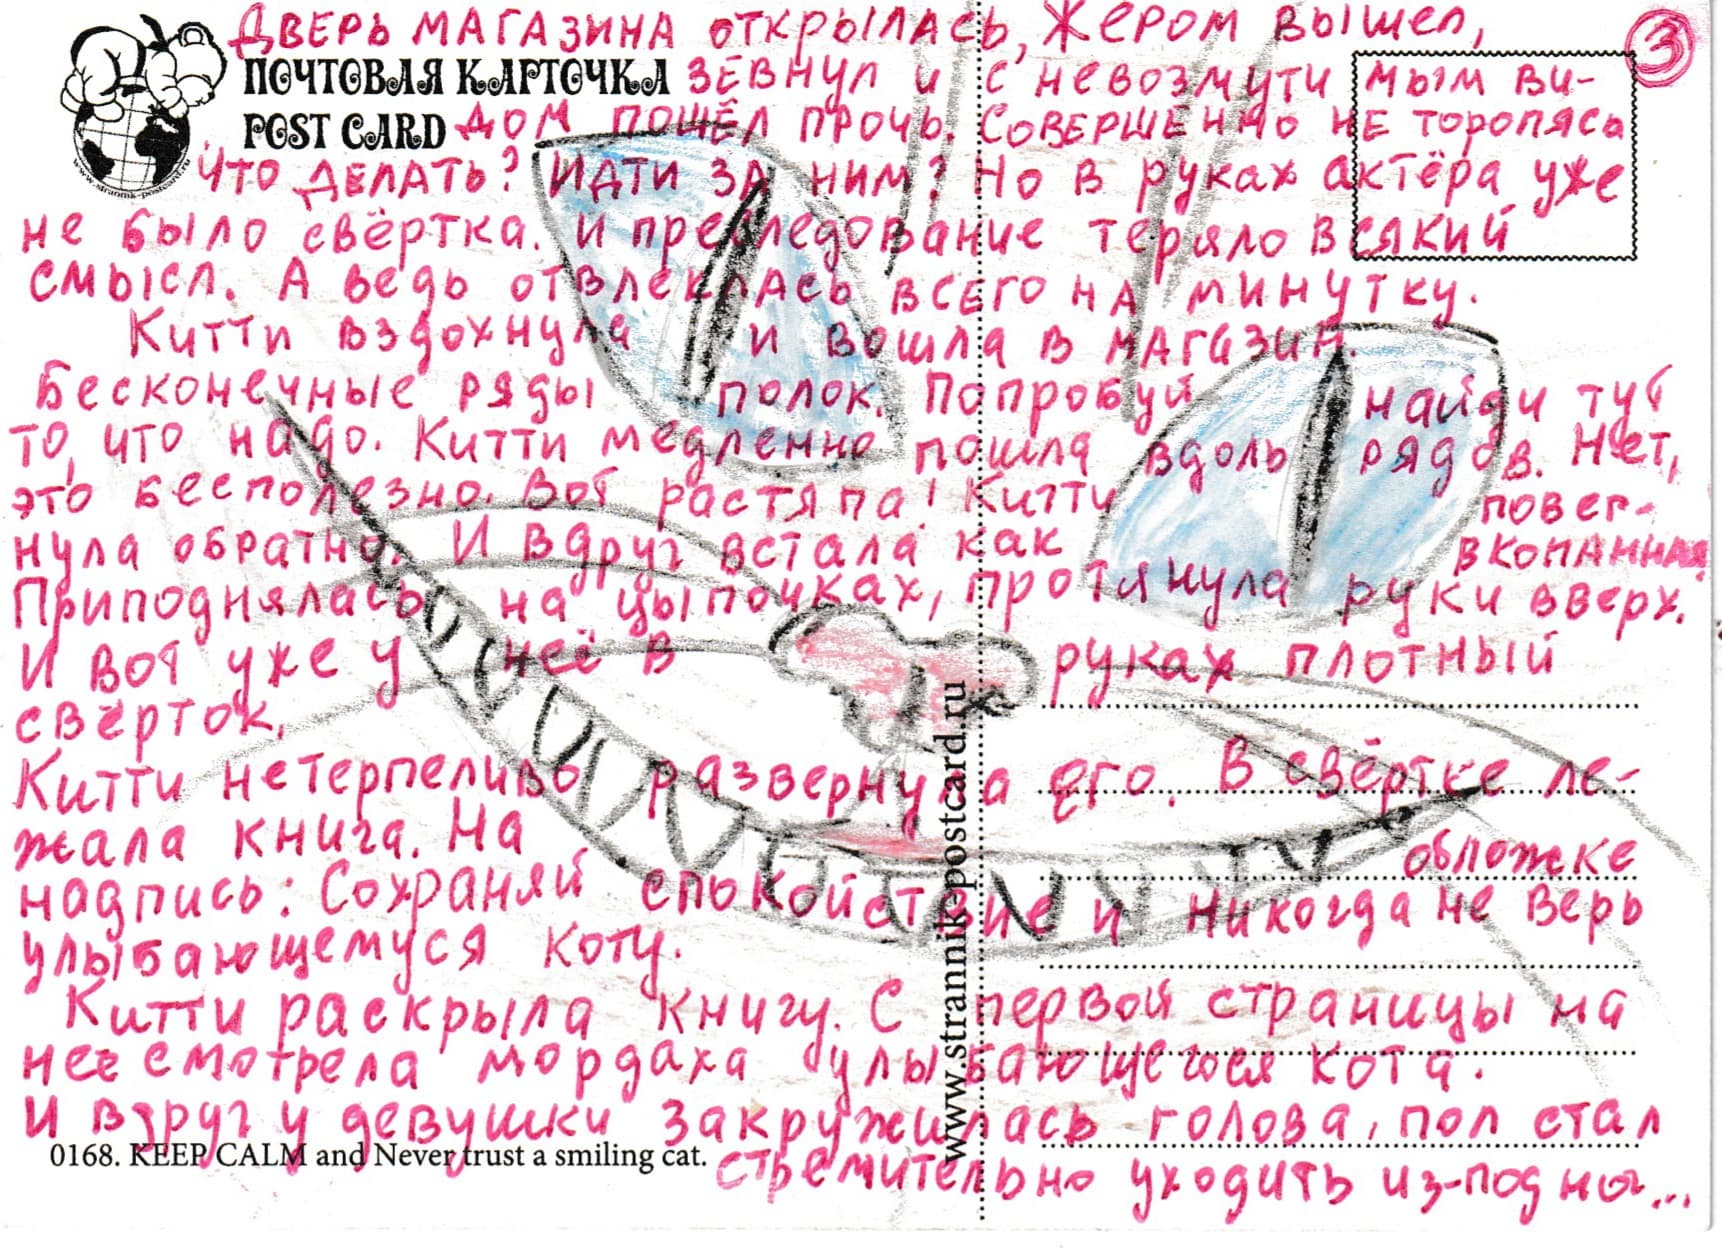 Дверь магазина открылась, Жером вышел,
③
ПОЧТОВАЯ КАРТОЧКА
зевнул и с невозмутимым ви-
POST CARD
дом пошёл прочь. Совершенно не торопясь
www.strannik-postcard.ru
Что делать? Идти за ним? Но в руках актёра уже
не было свёртка. и преследование теряло всякий
смысл. А ведь отвлеклась всего на минутку.
Китти вздохнула и вошла в магазин.
Бесконечные ряды полок. Попробуй найди тут
то, что надо. Китти медленно пошла вдоль рядов. Нет,
это бесполезно. Вот растяпа! Китти повер-
нула обратно. И вдруг встала как вкопанная
Приподнялась на цыпочках, протянула руки вверх.
И вот уже у неё в руках плотный
свёрток.
Китти нетерпеливо развернула его. В свёртке ле-
жала книга. На обложке
надпись: Сохраняй спокойствие и никогда не верь
улыбающемуся коту.
Китти раскрыла книгу. С первой страницы на
неё смотрела мордаха улыбающегося кота.
И вдруг у девушки закружилась голова, пол стал
0168. KEEP CALM and Never trust a smiling cat.
стремительно уходить из-под ног...
www.strannik-postcard.ru